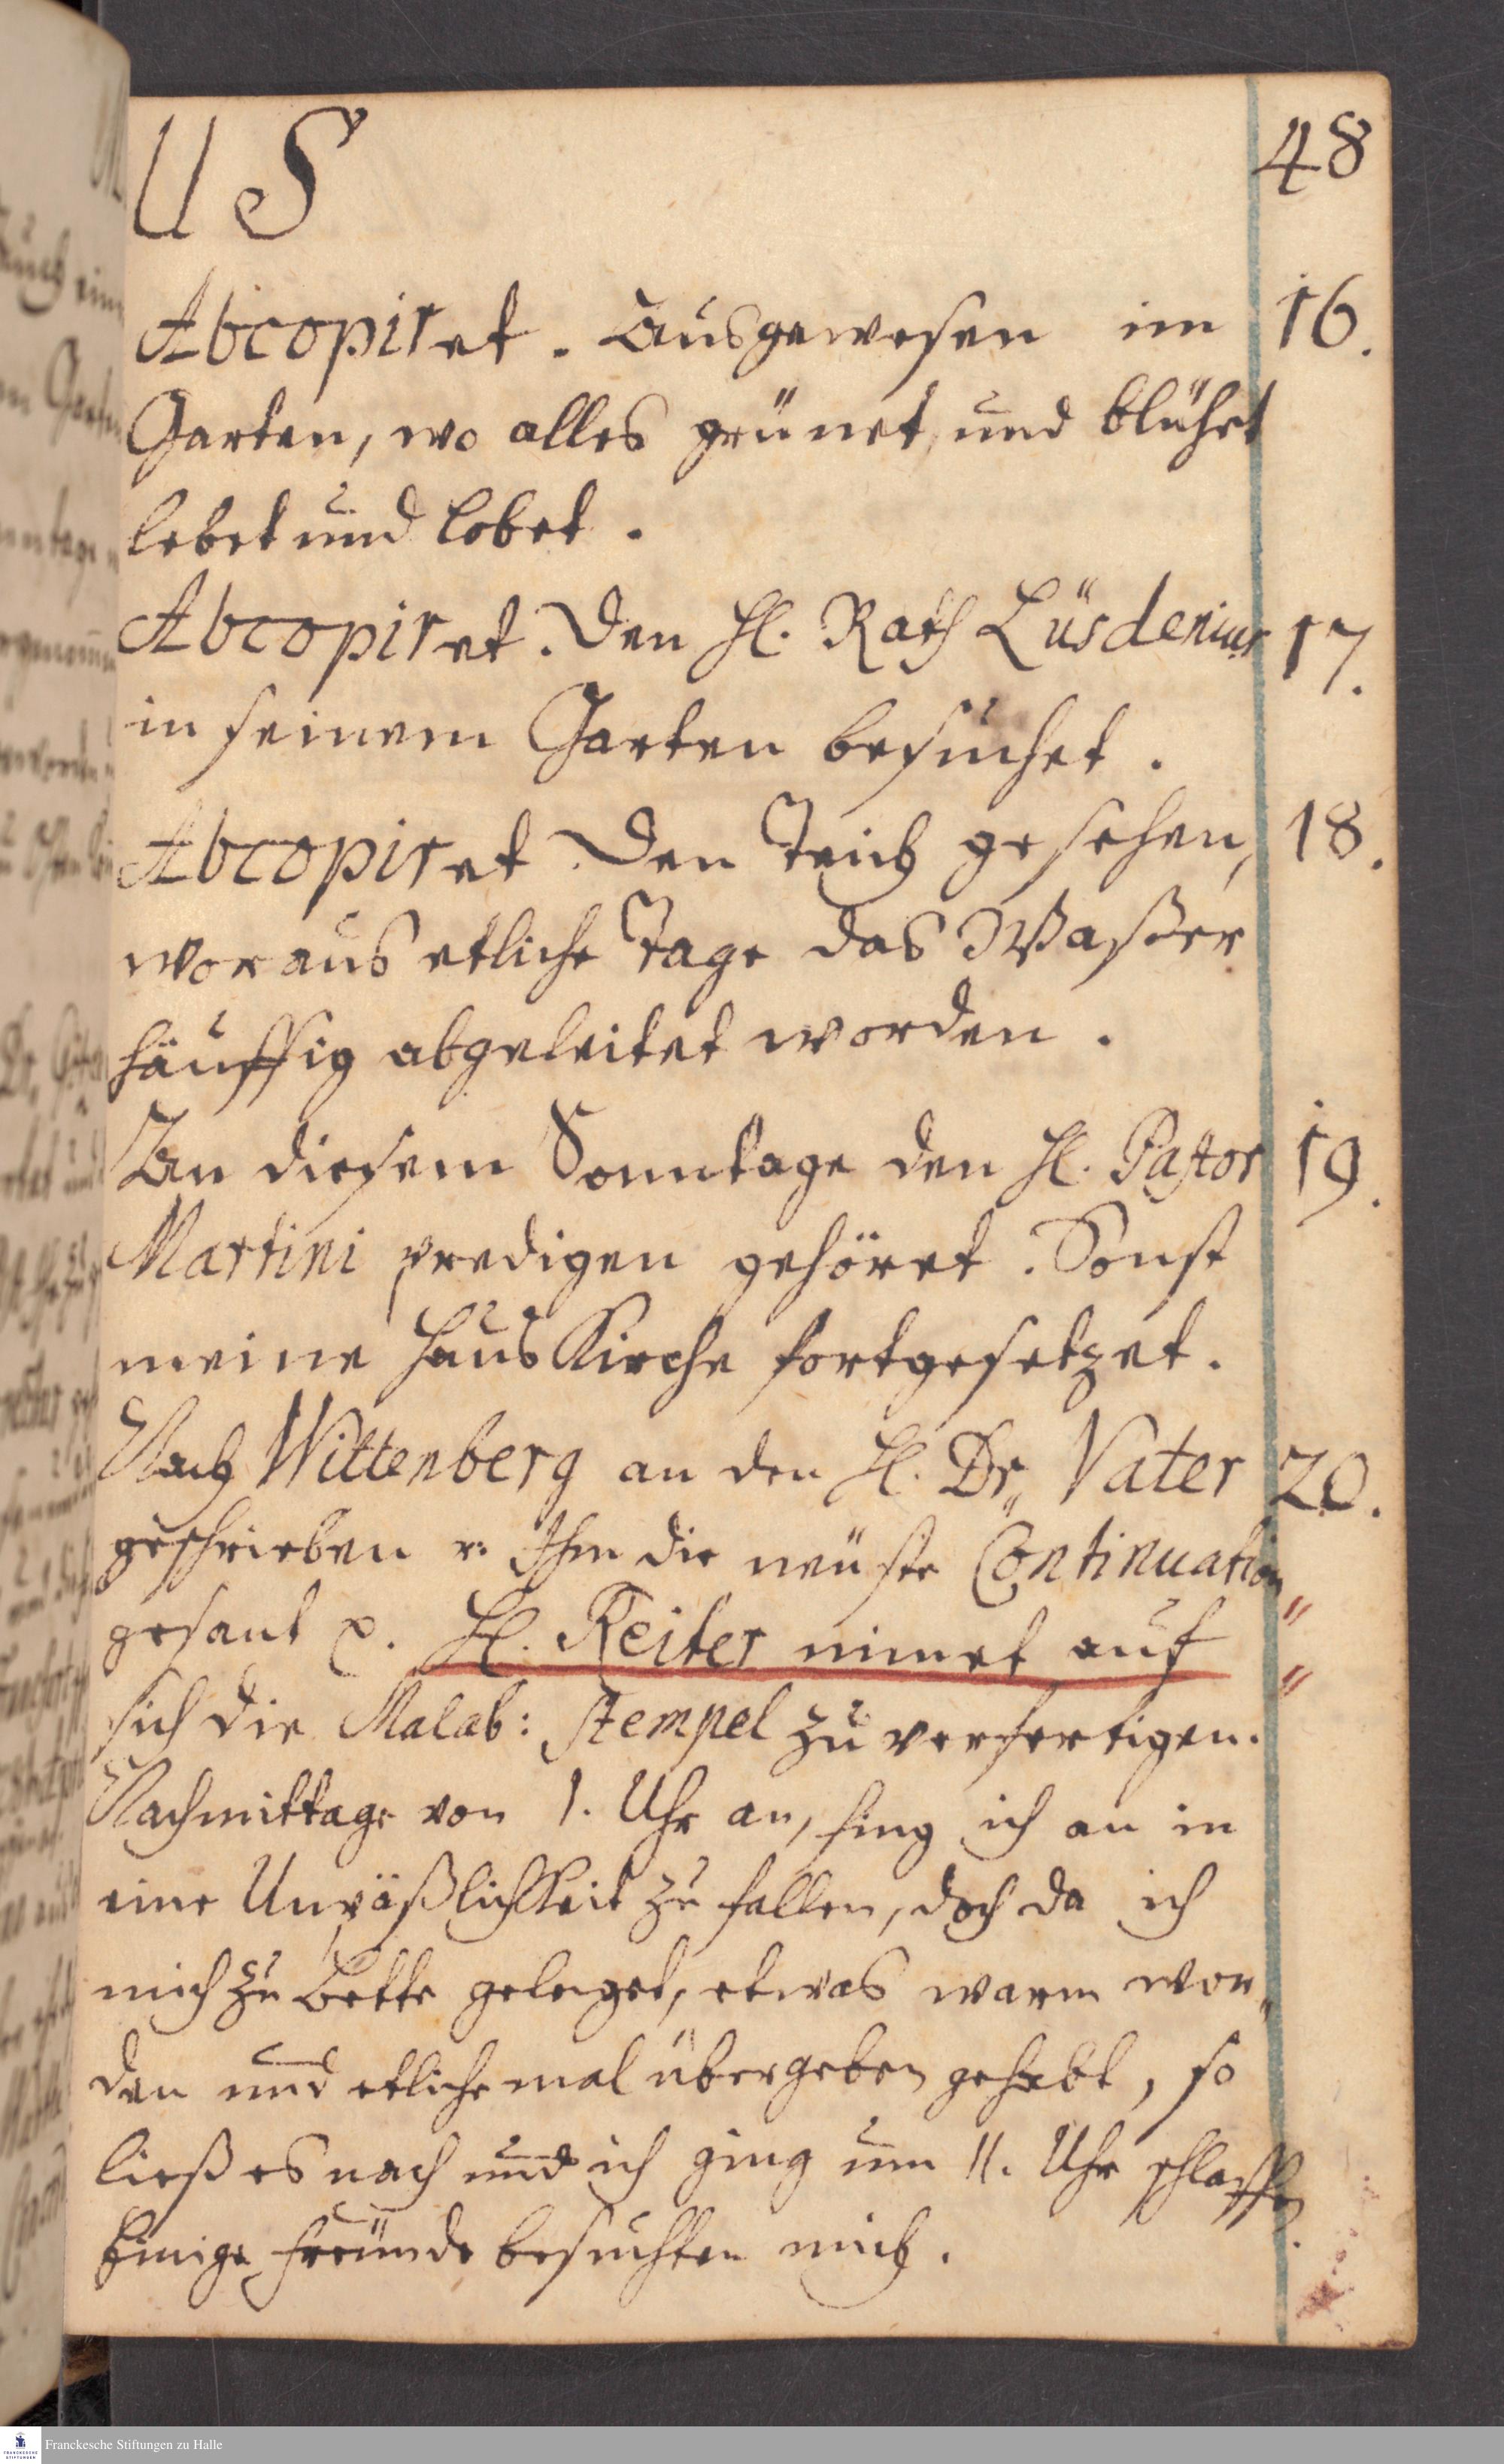 US 48
Abcopiret. Ausgewesen im 16.
Garten, wo alles grünet, und blühet
lebet und lobet.
Abcopiret. Den Hl. Rath Lüsdenius 17.
in seinem Garten besuchet.
Abcopiret. Den Teich gesehen, 18.
woraus etliche Tage das Waßer
häuffig abgeleitet worden.
An diesem Sonntage den Hl. Pastor 19.
Martini predigen gehöret. Sonst
meine HausKirche fortgesetzet.
Nach Wittenberg an den Hl. Dr. Vater 20.
geschrieben u: Ihm die neüste Continuation
gesant p. Hl. Reiter nimet auf
sich die Malab: stempel zu verfertigen.
Nachmittage von 1. Uhr an, fing ich an in
eine Unpäßlichkeit zu fallen, doch da ich
mich zu bette geleget, etwas warm wor„
den und etliche mal übergeben gehabt, so
ließ es nach und ich ging um 11. Uhr schlaffen.
Einige freünde besuchten mich.
Franckesche Stiftungen zu Halle